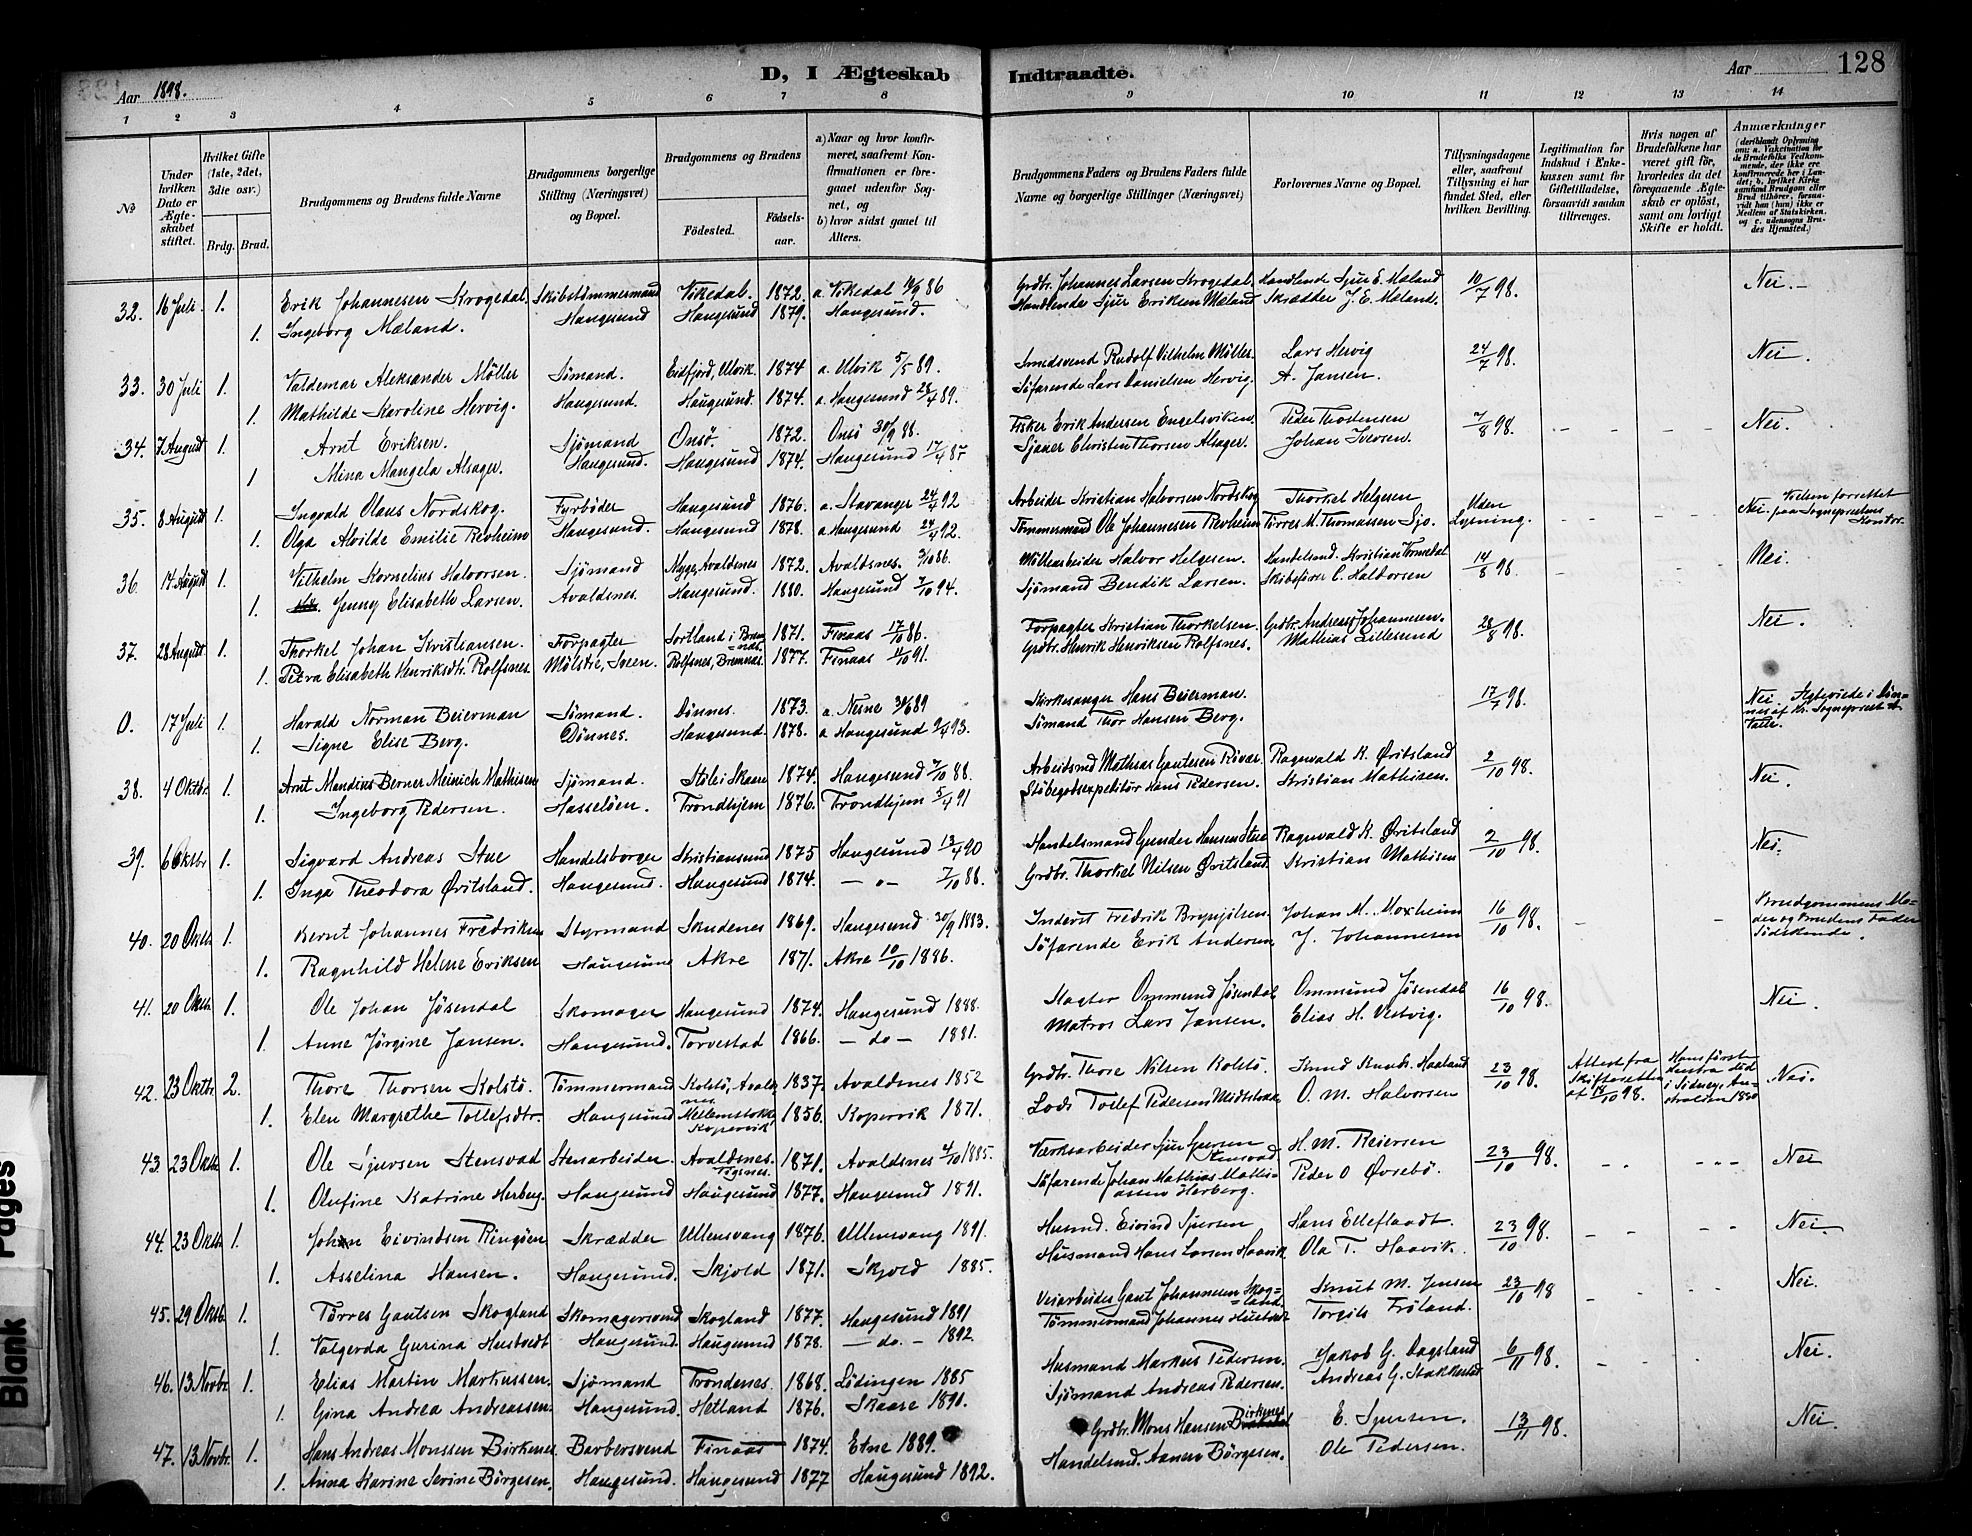 Aar 1898.
D, I Ægteskab Indtraadte.
Aar 128
1 2 3 4 5 6 7 8 9 10 11 12 13 14
No
Under hvilken Dato er Ægteskabet stiftet.
Hvilket Gifte (1ste, 2det, 3die osv.)
Brdg. Brud.
Brudgommens og Brudens fulde Navne
Brudgommens borgerlige Stilling (Næringsvei) og Bopæl.
Brudgommens og Brudens
Födested. Födselsaar.
a) Naar og hvor konfirmeret, saafremt Konfirmationen er foregaaet udenfor Sognet, og
b) hvor sidst gaaet til Alters.
Brudgommens Faders og Brudens Faders fulde Navne og borgerlige Stillinger (Næringsvei)
Forlovernes Navne og Bopæl.
Tillysningsdagene eller, saafremt Tillysning ei har fundet Sted, efter hvilken Bevilling.
Legitimation for Indskud i Enkekassen samt for Giftetilladelse, forsaavidt saadan tiltrænges.
Hvis nogen af Brudefolkene har været gift för, hvorledes da det foregaaende Ægteskab er oplöst, samt om lovligt Skifte er holdt.
Anmærkninger
32. 16 Juli 1. Erik Johannesen Krogedal. Skibstömmermand Vikedal. 1872. a. Vikedal 86 Grdbr. Johannes Larsen Krogedal. Handlende Sjur E. Mæland 10/7 98. Nei.
1. Ingeborg Mæland. Haugesund Haugesund 1879. Haugesund. Handlende Sjur Eriksen Mæland Skrædder J. E. Mæland.
33. 30 Juli 1. Valdemar Aleksander Möller Sömand. Eidfjord, Ulvik. 1874 a. Ulvik 5/5 89. Smedsvend Rudolf Vilhelm Möller. Lars Hervig 24/7 98. Nei.
1. Mathilde Karoline Hervig. Haugesund. Haugesund. 1874. a. Haugesund 28/4 89. Söfarende Lars Danielsen Hervig. A. Jansen.
34. 7 August 1. Arnt Eriksen. Sjömand Onsö. 1872. Onsö 30/9 88. Fisker Erik Andersen Engelsviken. Peder Thodensen 7/8 98. Nei.
1 Mina Mangela Alsager. Haugesund. Haugesund 1874. Haugesund 17/4 87 Sjauer Christen Thorsen Alsager. Johan Iversen.
35. 8 August 1. Ingvald Olaus Nordskog. Fyrböder Haugesund 1876. a. Stavanger 24/4 92 Arbeider Kristian Halvorsen Nordskog Thorkel Helgesen Uden Lysning. Nei. Vielsen forrettet paa Sogneprestens Kontor.
1. Olga Alvilde Emilie Revheim Haugesund. Haugesund 1878. a. Haugesund 24/4 92. Tömmermand Ole Johannesen Revheim Torres M. Thomassen Sjo.
36. 14 August 1. Vilhelm Kornelius Halvorsen. Sjömand Nyge, Avaldsnes 1872. Avaldsnes. 3/10 86. Möllearbeider Halvor Helgesen. Handelsmd. Kristian Vormedal 14/8 98. Nei.
1. Jenny Elisabeth Larsen. Avaldsnes. Haugesund. 1880. Haugesund 7/10 94. Sjömand Bendik Larsen. Skibsförer C. Haldorsen
37. 28 August 1. Thorkel Johan Kristiansen. Forpagter Sortland i Bremnes. 1871. Finaas 17/10 86. Forpagter Kristian Thorkelsen. Grdbr. Andreas Johannesen. 28/8 98. Nei.
1. Petra Elisabeth Henriksdtr. Rolfsnes. Mölstre, Sveen. Rolfsnes, Bremnes. 1877. Finaas 11/10 91. Grdbr. Henrik Henriksen Rolfsnes. Mathias Lillesund
O. 17 Juli 1. Harald Norman Beierman Sömand. Dönnes. 1873. a. Nesne 30/6 89 Kirkesanger Hans Beierman. 17/7 98. Nei. Ægteviede i Dönnes af Kr. Sogneprest
1. Signe Elise Berg. Dönnes. Haugesund. 1878. a Haugesund 9/4 93. Sömand Thor Hansen Berg.
38. 4 Oktbr. 1. Arnt Mandius Berner Meinich Mathisen Sjömand. Stöle i Skaare 1874. Haugesund 7/10 88. Arbeidsmd Mathias Gautesen Rövær. Ragnvald K. Øritsland 2/10 98. Nei.
1. Ingeborg Pedersen. Hasselöen. Trondhjem 1876. Trondhjem 5/4 91 Stöbegodsexpeditör Hans Pedersen. Kristian Mathisen.
39. 6 Oktbr 1. Sigvard Andreas Stue Handelsborger Kristiansund 1875 Haugesund 13/4 90 Handelsmand Gunder Hansen Stue Ragnvald K. Øritsland 2/10 98. Nei.
1. Inga Theodora Øritsland. Haugesund. Haugesund 1874. — o — 7/10 88. Grdbr. Thorkel Nilsen Øritsland. Kristian Mathisen
40. 20 Oktb. 1. Bernt Johannes Fredriksen Styrmand Skudenes 1869. Haugesund 30/9 1883. Inderst Fredrik Brynjulsen. Johan M. Moxheim 16/10 98. Brudgommens Moder og Brudens Fader Södskende.
1. Ragnhild Helene Eriksen Haugesund Akre 1871. Akre 10/10 1886. Söfarende Erik Andersen J. Johannesen
41. 20 Oktb. 1. Ole Johan Jösendal Skomager Haugesund 1874. Haugesund 1888. Slagter Ommund Jösendal Ommund Jösendal 16/10 98. Nei
1. Anne Jörgine Jansen. Haugesund. Torvestad 1866. — do — 1881. Matros Lars Jansen. Elias H. Vestvig.
42. 23 Oktbr. 2. Thore Thorsen Kolstö. Tömmermand Kolstö, Avaldsnes 1837. Avaldsnes 1852 Grdbr. Thore Nilsen Kolstö. Knud Knuds. Haaland 23/10 98. Attest fra Skifteretten af 18/10 98. Hans förste Hustru död i Sidney, Australien 1890 Nei.
1. Elen Margrethe Tollefsdtr. Haugesund Mellemstokke, Kopervik 1856. Kopervik 1871. Lods Tollef Pedersen Midtstokke O. M. Halvorsen
43. 23 Oktb. 1. Ole Sjursen Stensvad Stenarbeider. Avaldsnes. 1871. Avaldsnes 4/10 1885. Værksarbeider Sjur Stensvad H. M. Reiersen 23/10 98. Nei
1. Olufine Katrine Herberg. Haugesund Haugesund 1877. Haugesund 1891. Söfarende Johan Mathias Mathiassen Herberg. Peder O Øvrebö.
44. 23 Oktb. 1. Johan Eivindsen Ringöen Skrædder Ullensvang 1876. Ullensvang 1891. Husmd. Eivind Sjursen Hans Elleflaadt. 23/10 98. Nei
1. Asselina Hansen. Haugesund. Skjold 1871. Skjold 1885. Husmand Hans Larsen Haavik. Ola T. Haavik.
45. 29 Oktb. 1. Törres Gautsen Skogland Skomagersvend Skogland 1877. Haugesund 1891 Veiarbeider Gaut Johannesen Skogland. Knut M. Jensen 23/10 98 Nei.
1. Valgerda Gurina Hustvedt Haugesund Haugesund 1878. — do. — 1892 Tömmermand Johannes Hustvedt Torgils Fröland.
46. 13 Novbr. 1. Elias Martin Markussen. Sjömand Trondenes. 1868. Lödingen 1885 Husmand Markus Pedersen. Jakob G. Dagsland 6/11 98. Nei.
1. Gina Andrea Andreassen. Haugesund. Hetland 1876. Skaare 1890. Sjömand Andreas Pedersen. Andreas G. Stakkestad
47. 13 Novbr. 1. Hans Andreas Monssen Birkenes. Barbersvend Finaas 1874. Etne 1889. Grdbr. Mons Hansen Birkenes E. Sjursen. 13/11 98. Nei
1. Anna Karine Serine Börgesen. Haugesund. Haugesund 1877 Haugesund 1892. Handelsmd. Börgesen. Ole Pedersen.
Blank Pages